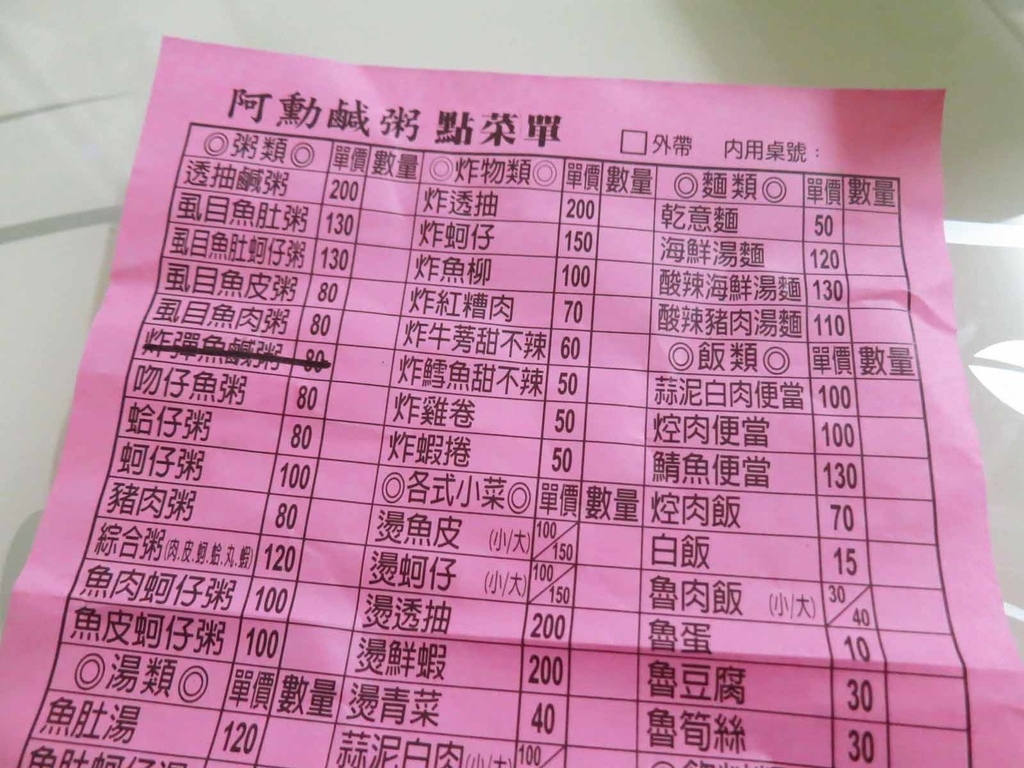 阿勳鹹粥 點菜單
□外帶 內用桌號：
◎粥類◎ 單價 數量
透抽鹹粥 200
虱目魚肚粥 130
虱目魚肚蚵仔粥 130
虱目魚皮粥 80
虱目魚肉粥 80
炸彈魚鹹粥 80
吻仔魚粥 80
蛤仔粥 80
蚵仔粥 100
豬肉粥 80
綜合粥(肉.皮.蚵.蛤.丸.蝦) 120
魚肉蚵仔粥 100
魚皮蚵仔粥 100
◎湯類◎ 單價 數量
魚肚湯 120
魚肚蚵仔湯
◎炸物類◎ 單價 數量
炸透抽 200
炸蚵仔 150
炸魚柳 100
炸紅糟肉 70
炸牛蒡甜不辣 60
炸鱈魚甜不辣 50
炸雞卷 50
炸蝦捲 50
◎各式小菜◎ 單價 數量
燙魚皮 (小/大) 100/150
燙蚵仔 (小/大) 100/150
燙透抽 200
燙鮮蝦 200
燙青菜 40
蒜泥白肉(小/大) 100/
◎麵類◎ 單價 數量
乾意麵 50
海鮮湯麵 120
酸辣海鮮湯麵 130
酸辣豬肉湯麵 110
◎飯類◎ 單價 數量
蒜泥白肉便當 100
焢肉便當 100
鯖魚便當 130
焢肉飯 70
白飯 15
魯肉飯 (小/大) 30/40
魯蛋 10
魯豆腐 30
魯筍絲 30